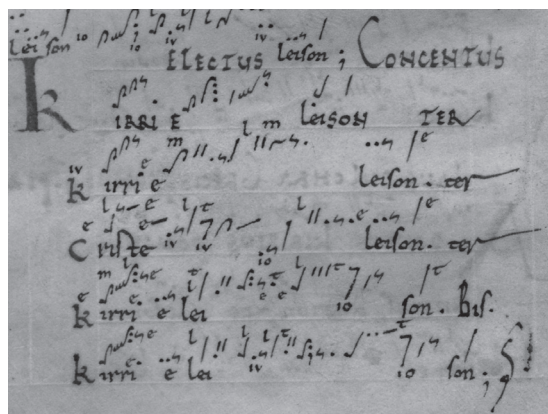 leison
ELECTUS leison ; CONCENTUS
KIRRI E LEISON TER
kirri e leison. ter
criste leison. ter
kirri e lei son. Bis.
kirri e lei son ;